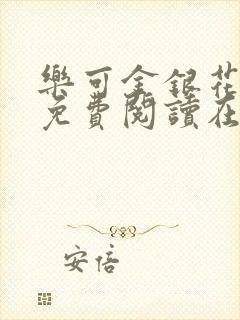 樂可金銀花
免費閱讀在
安倍